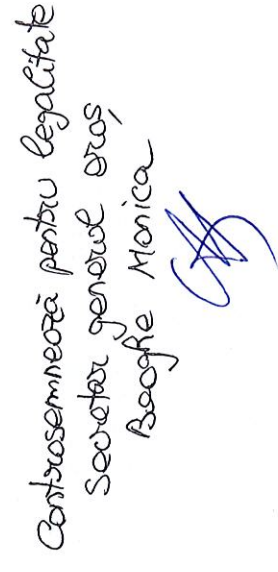 Contrasemnează pentru legalitate
Secretar general oraș,
Beoghe Monica